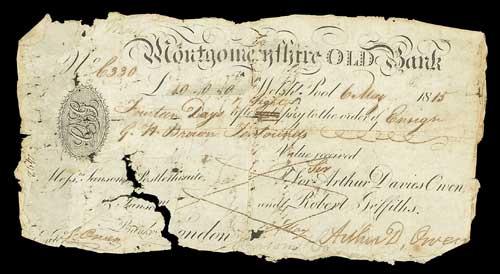 Montgomeryshire OLD Bank
No C330
£ 10.0.0 Welsh Pool 6 May 1815
Fourteen Days after Sight pay to the order of Ensign
G. H. Brown Ten Pounds
Value received
Messrs Ransom Postlethwaite For Arthur Davies Owen
& Ransom and Robert Griffiths.
London Arthur D. Owen